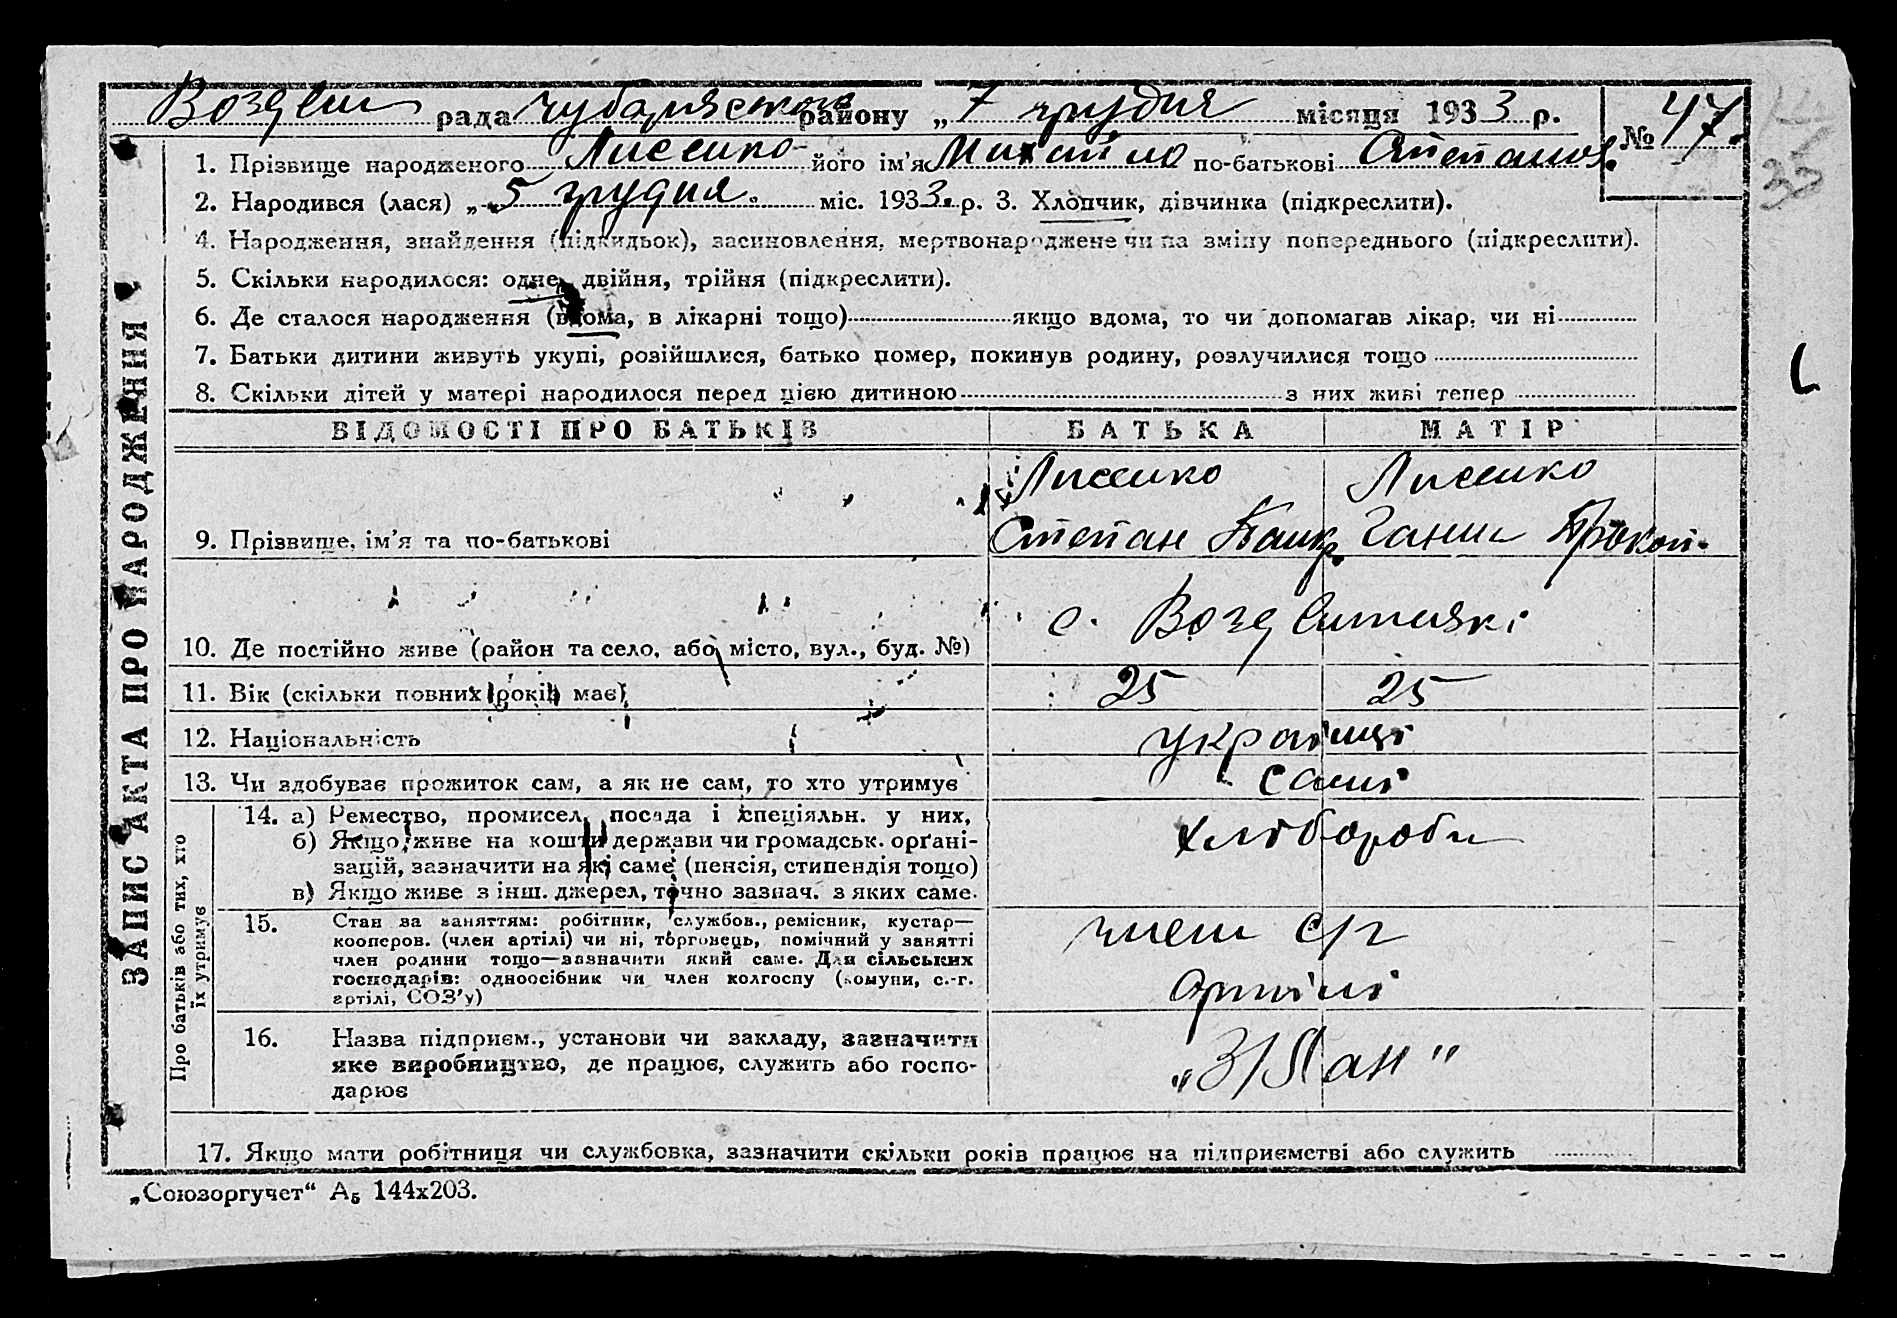 Воздвиж рада Чубарівського району „ 7 грудня місяця 1933 р. № 47.
1. Прізвище народженого Лисенко його ім’я Михайло по-батькові Степанов.
2. Народився (лася) „ 5 грудня. міс. 1933. р. 3. Хлопчик, дівчинка (підкреслити).
4. Народження, знайдення (підкидьок), засиновлення, мертвонароджене чи на зміну попереднього (підкреслити).
5. Скільки народилося: одне, двійня, трійня (підкреслити).
6. Де сталося народження (вдома, в лікарні тощо) якщо вдома, то чи допомагав лікар, чи ні
7. Батьки дитини живуть укупі, розійшлися, батько помер, покинув родину, розлучилися тощо
8. Скільки дітей у матері народилося перед цією дитиною з них живі тепер
ВІДОМОСТІ ПРО БАТЬКІВ БАТЬКА МАТІР
Лисенко Лисенко
9. Прізвище, ім’я та по-батькові Степан Панкр. Ганна Прокоп.
10. Де постійно живе (район та село, або місто, вул., буд. №) с. Воздвижівкі
11. Вік (скільки повних років має) 25 25
12. Національність українці
13. Чи здобуває прожиток сам, а як не сам, то хто утримує самі
14. а) Ремество, промисел, посада і спеціяльн. у них, хлібороби
б) Якщо живе на кошти держави чи громадськ. орґані-
зацій, зазначити на які саме (пенсія, стипендія тощо)
в) Якщо живе з інш. джерел, точно зазнач. з яких саме.
15. Стан за заняттям: робітник, службов., ремісник, кустар—
кооперов. (член артілі) чи ні, торговець, помічний у занятті
член родини тощо—зазначити який саме. Для сільських
господарів: одноосібник чи член колгоспу (комуни, с.-г.
артілі, СОЗ’у)
член с/г
артілі
16. Назва підприєм., установи чи закладу, зазначити
яке виробництво, де працює, служить або госпо-
дарює
„З/План"
17. Якщо мати робітниця чи службовка, зазначити скільки років працює на підприємстві або служить
ЗАПИС АКТА ПРО НАРОДЖЕННЯ
Про батьків або тих, хто
їх утримує
„Союзоргучет“ А₅ 144х203.